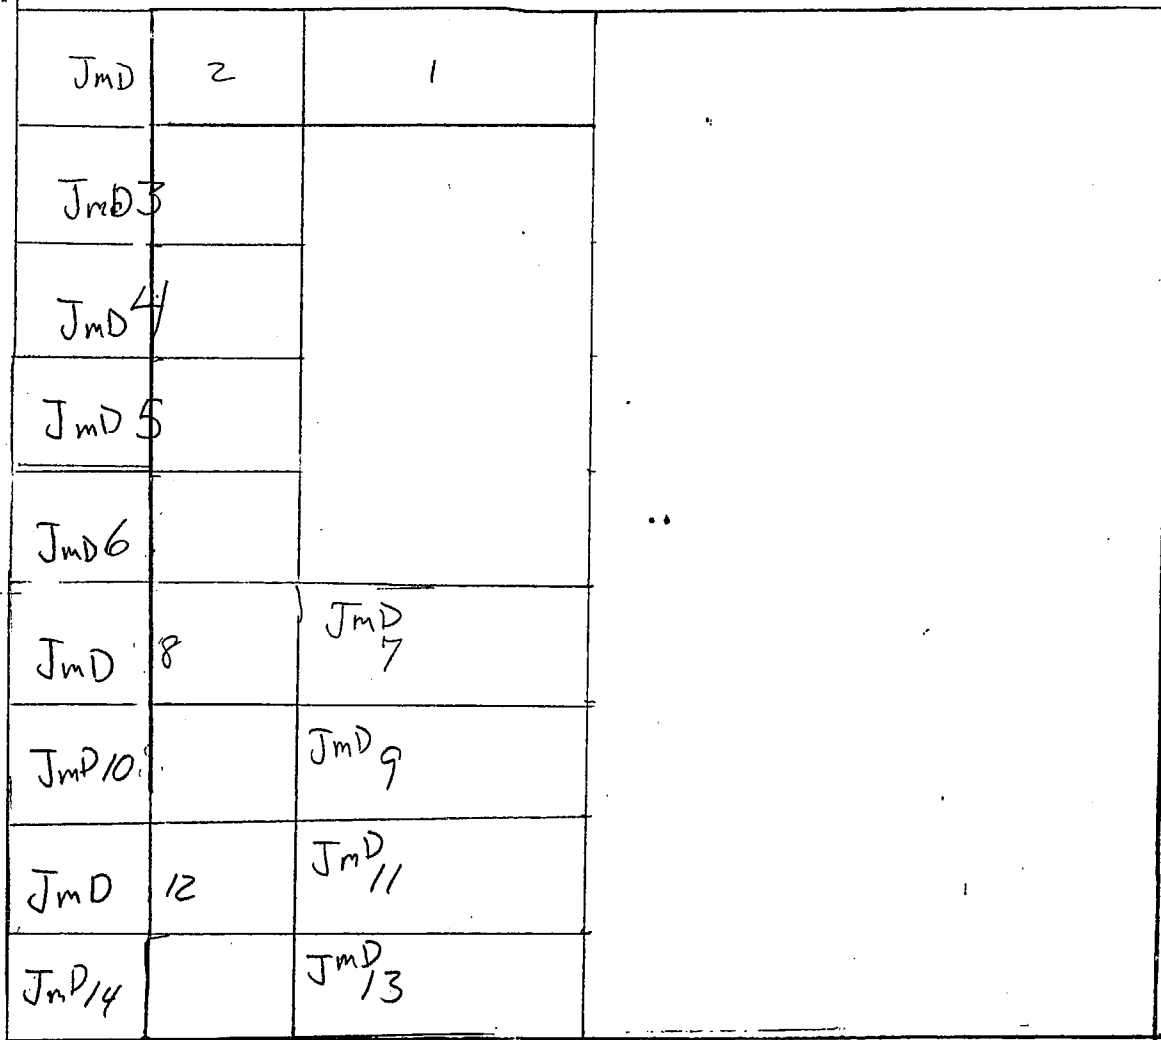 JmD 2 1
JmD3
JmD 4
JmD 5
JmD6
JmD 8 JmD 7
JmD10 JmD 9
JmD 12 JmD 11
JmD14 JmD 13